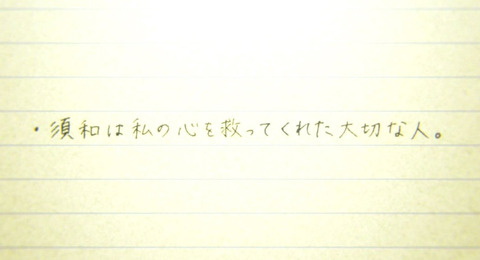 ・須和は私の心を救ってくれた大切な人。